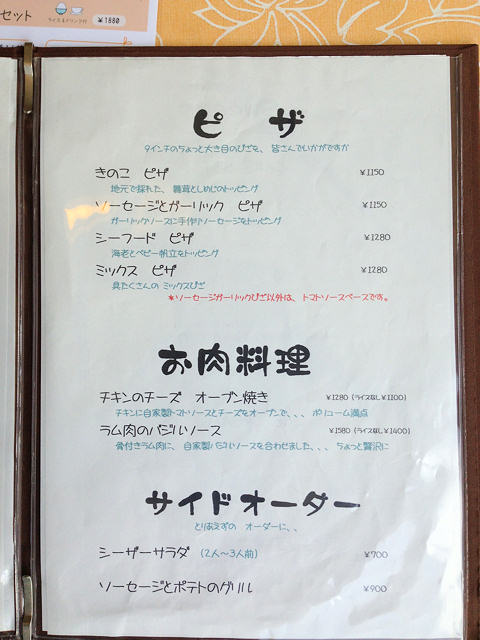 セット
ライス&ドリンク付
¥1880
ピザ
9インチのちょっと大き目のぴざを、皆さんでいかがですか
きのこ ピザ ¥1150
地元で採れた、舞茸としめじのトッピング
ソーセージとガーリック ピザ ¥1150
ガーリックソースに手作りソーセージをトッピング
シーフード ピザ ¥1280
海老とベビー帆立をトッピング
ミックス ピザ ¥1280
具たくさんの ミックスぴざ
*ソーセージガーリックぴざ以外は、トマトソースベースです。
お肉料理
チキンのチーズ オーブン焼き ¥1280(ライスなし¥1100)
チキンに自家製トマトソースとチーズをオーブンで、、、 ボリューム満点
ラム肉のバジルソース ¥1580(ライスなし¥1400)
骨付きラム肉に、自家製バジルソースを合わせました、、、ちょっと贅沢に
サイドオーダー
とりあえずの オーダーに、、
シーザーサラダ (2人~3人前) ¥700
ソーセージとポテトのグリル ¥900